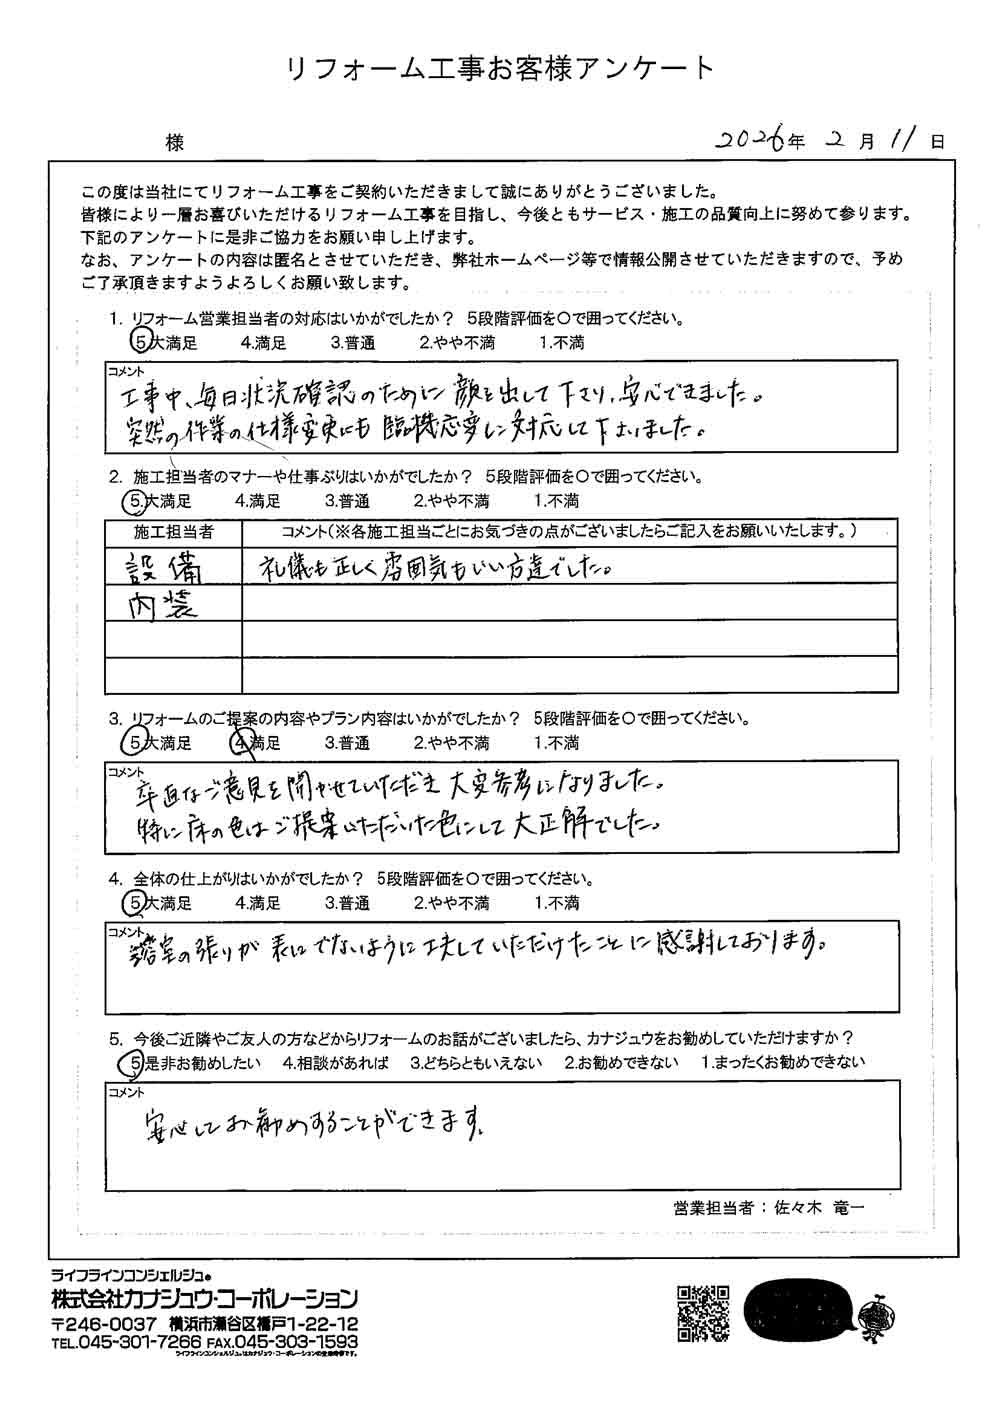 リフォーム工事お客様アンケート
様 2026年 2月 11日
この度は当社にてリフォーム工事をご契約いただきまして誠にありがとうございました。
皆様により一層お喜びいただけるリフォーム工事を目指し、今後ともサービス・施工の品質向上に努めて参ります。
下記のアンケートに是非ご協力をお願い申し上げます。
なお、アンケートの内容は匿名とさせていただき、弊社ホームページ等で情報公開させていただきますので、予め
ご了承頂きますようよろしくお願い致します。
1. リフォーム営業担当者の対応はいかがでしたか? 5段階評価を○で囲ってください。
5.大満足 4.満足 3.普通 2.やや不満 1.不満
コメント
工事中、毎日状況確認のために顔を出して下さり、安心できました。
突然の作業の仕様変更にも臨機応変に対応して下さいました。
2. 施工担当者のマナーや仕事ぶりはいかがでしたか? 5段階評価を○で囲ってください。
5.大満足 4.満足 3.普通 2.やや不満 1.不満
施工担当者 コメント(※各施工担当ごとにお気づきの点がございましたらご記入をお願いいたします。)
設備 礼儀も正しく雰囲気もいい方達でした。
内装
3. リフォームのご提案の内容やプラン内容はいかがでしたか? 5段階評価を○で囲ってください。
5.大満足 4.満足 3.普通 2.やや不満 1.不満
コメント
率直なご意見を聞かせていただき大変参考になりました。
特に床の色はご提案いただいた色にして大正解でした。
4. 全体の仕上がりはいかがでしたか? 5段階評価を○で囲ってください。
5.大満足 4.満足 3.普通 2.やや不満 1.不満
コメント
の張りが表にでないように工夫していただけたことに感謝しております。
5. 今後ご近隣やご友人の方などからリフォームのお話がございましたら、カナジュウをお勧めしていただけますか?
5.是非お勧めしたい 4.相談があれば 3.どちらともいえない 2.お勧めできない 1.まったくお勧めできない
コメント
安心してお勧めすることができます。
営業担当者:佐々木 竜一
ライフラインコンシェルジュ®
株式会社カナジュウ・コーポレーション
〒246-0037 横浜市瀬谷区橋戸1-22-12
TEL.045-301-7266 FAX.045-303-1593
ライフラインコンシェルジュ®はカナジュウ・コーポレーションの登録商標です。